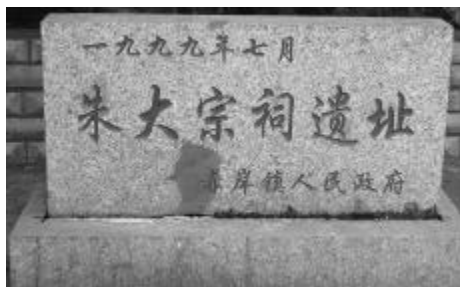 一九九九年七月
朱大宗祠遗址
赤岸镇人民政府